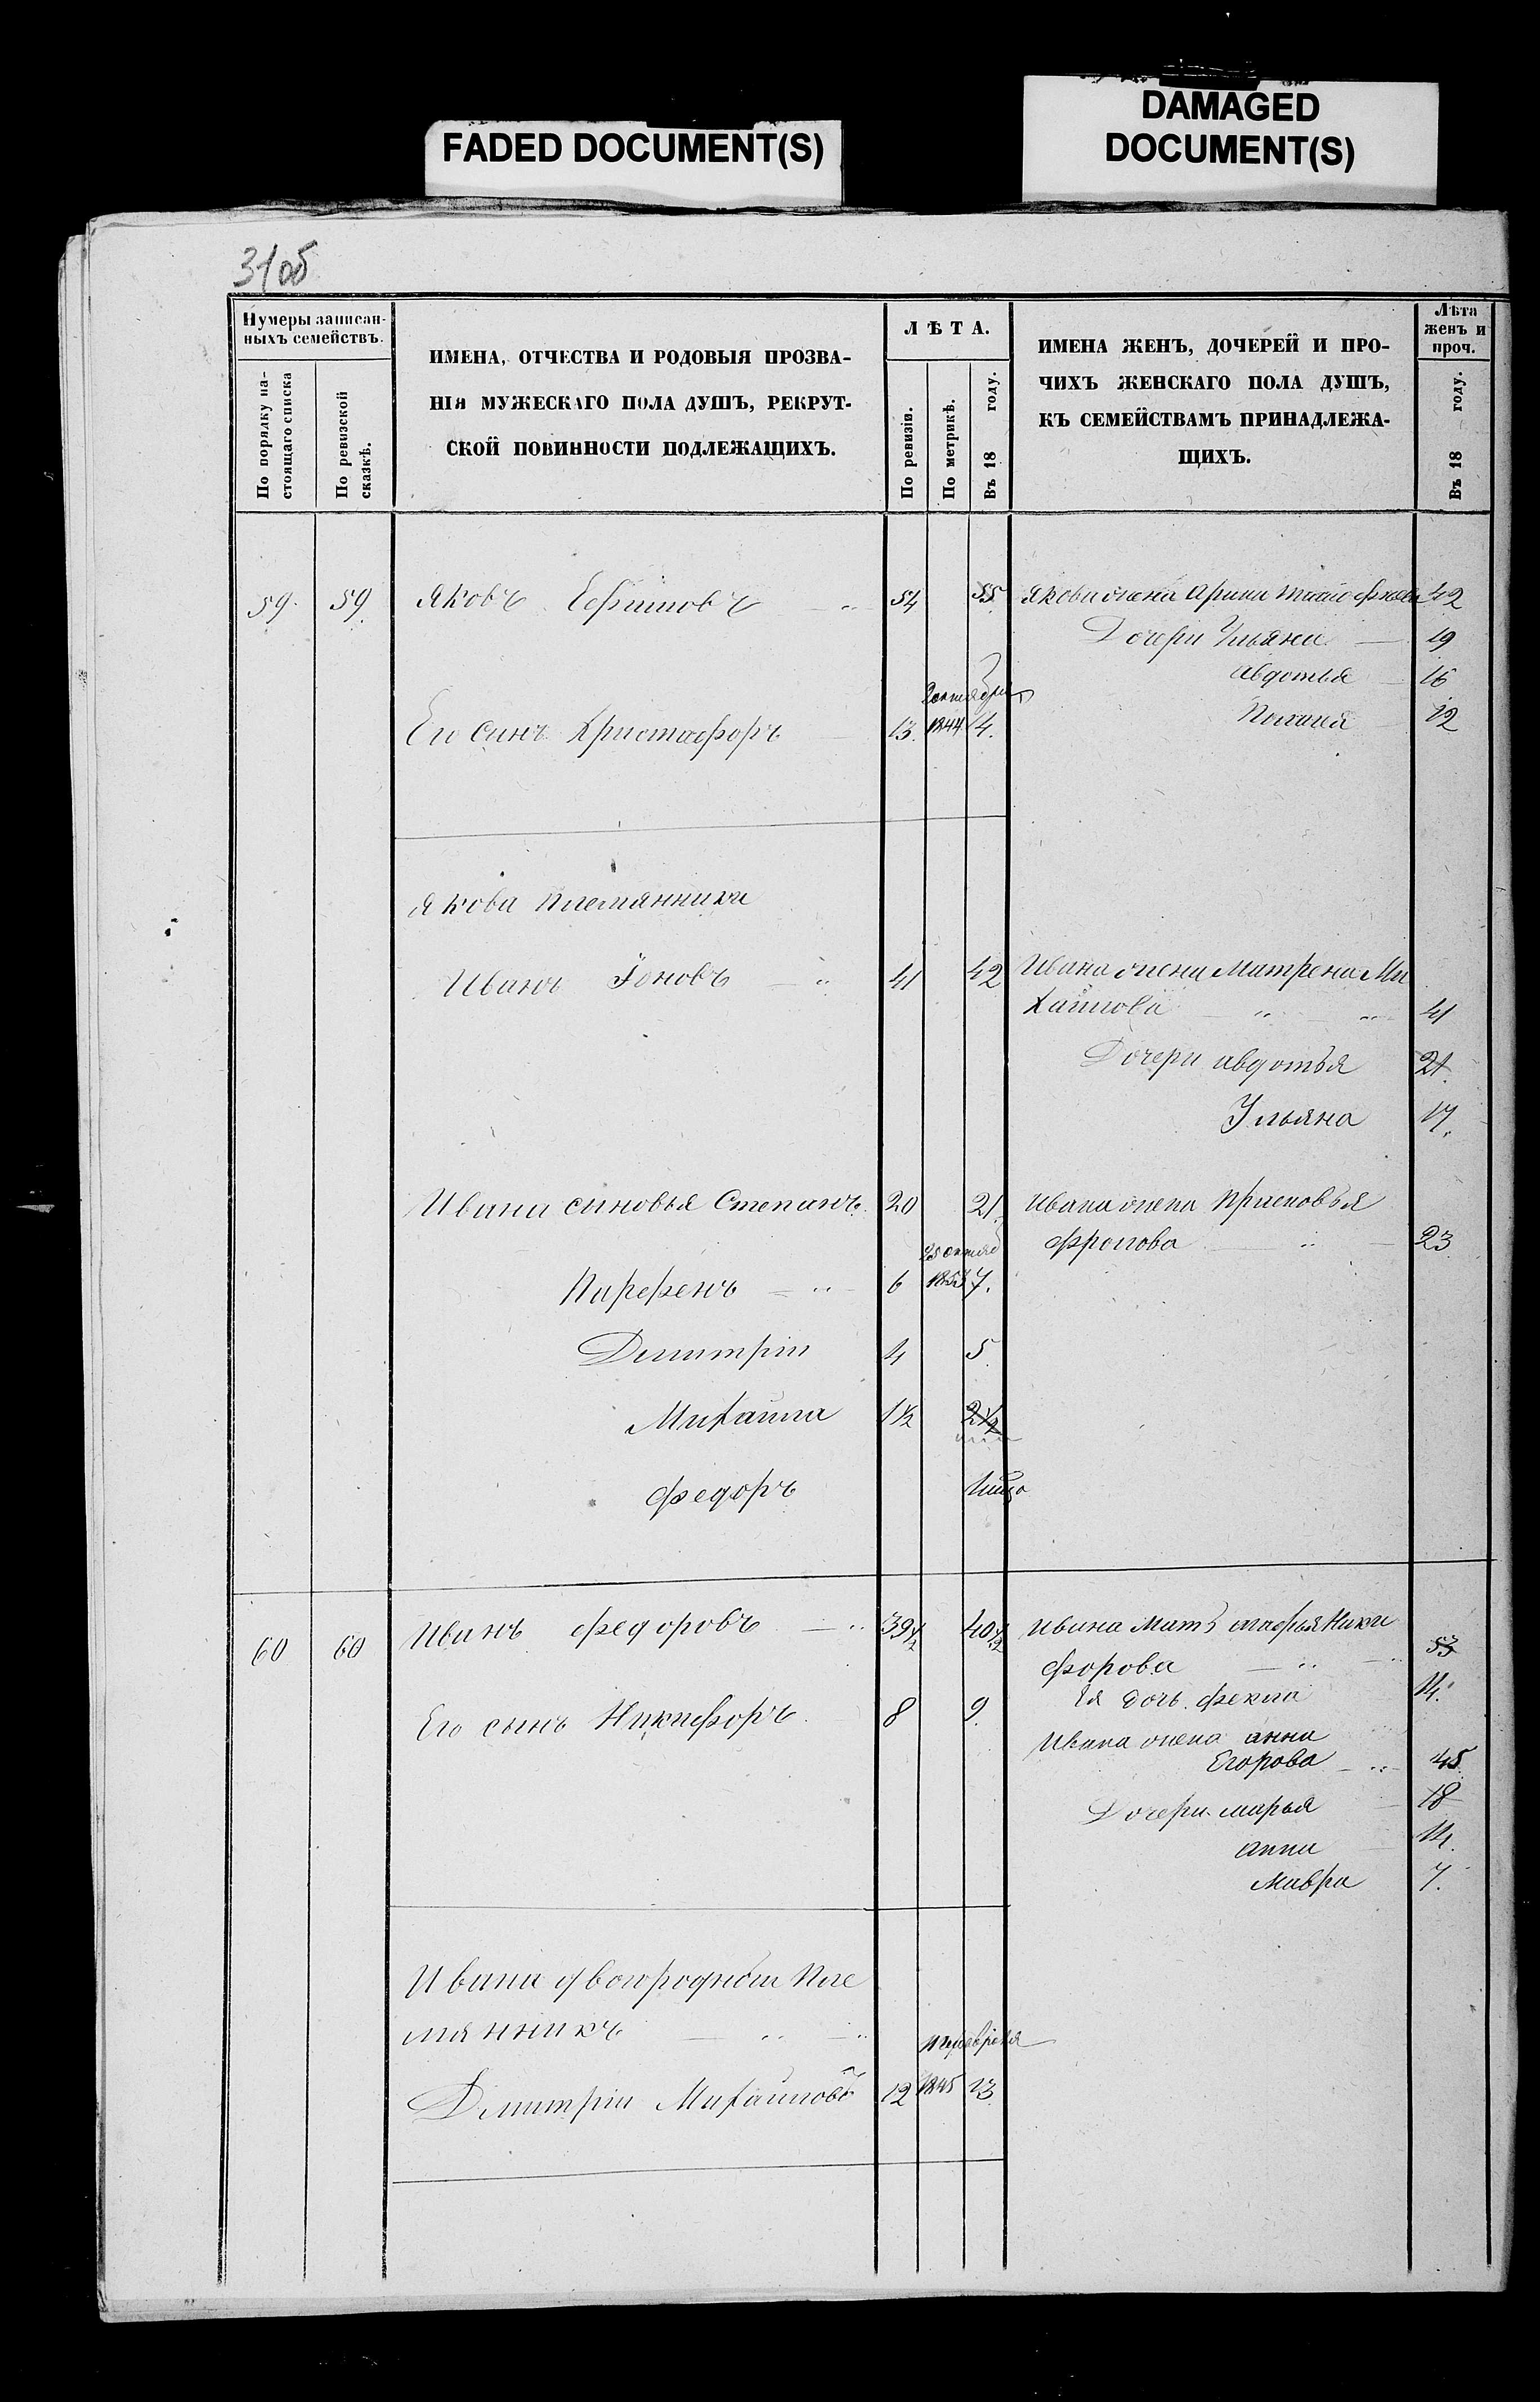 FADED DOCUMENT(S)
DAMAGED
DOCUMENT(S)
31об
Нумеры записан-
ныхъ семействъ.
По порядку на-
стоящаго списка
По ревизской
сказкѣ.
ИМЕНА, ОТЧЕСТВА И РОДОВЫЯ ПРОЗВА-
НІЯ МУЖЕСКАГО ПОЛА ДУШЪ, РЕКРУТ-
СКОЙ ПОВИННОСТИ ПОДЛЕЖАЩИХЪ.
ЛѢТА.
По ревизіи.
По метрикѣ.
Въ 18 году.
ИМЕНА ЖЕНЪ, ДОЧЕРЕЙ И ПРО-
ЧИХЪ ЖЕНСКАГО ПОЛА ДУШЪ,
КЪ СЕМЕЙСТВАМЪ ПРИНАДЛЕЖА-
ЩИХЪ.
Лѣта
женъ и
проч.
Въ 18 году.
59. 59. Яковъ Ефимовъ 54 55 Якова жена Арина 42
Дочери Ульяна 19
Авдотья 16
октября
Его сынъ Христофоръ 13. 1844 14. 12
Якова племянники
Иванъ Іоновъ 41 42 Ивана жена Матрена Ми
хаилова 41
Дочери Авдотья 21.
Ульяна 17.
Ивана сыновья Степанъ 20 21. Ивана жена Прасковья
Фролова 23
25 октяб
Парфенъ 6 1853 7.
Димитрій 4 5
Михаила 1½ 2½
Федоръ
60 60 Иванъ Федоровъ 39½ 40½ Ивана мать Агафья Ники
форова 53
Ея дочь Фекла 14.
Его сынъ Никифоръ 8 9.
Ивана жена Анна
Егорова 45
Дочери Марья 18
Анна 14.
Мавра 7.
Ивана двоюродной пле
мянникъ
февраля
Димитрій Михаиловъ 12 1845 13